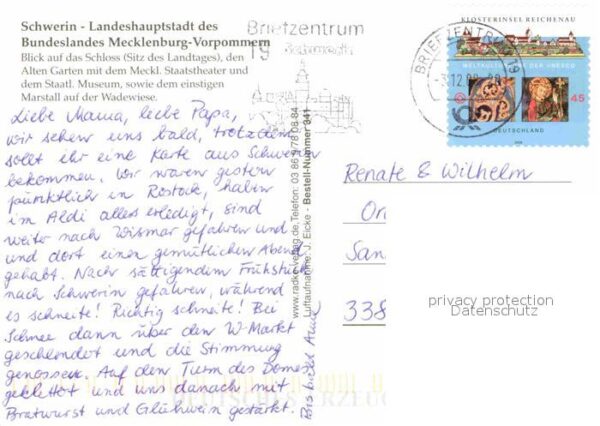 Schwerin - Landeshauptstadt des
Bundeslandes Mecklenburg-Vorpommern
Blick auf das Schloss (Sitz des Landtages), den
Alten Garten mit dem Meckl. Staatstheater und
dem Staatl. Museum, sowie dem einstigen
Marstall auf der Wadewiese.
Liebe Mama, liebe Papa,
wir sehen uns bald, trotzdem
sollt ihr eine Karte aus Schwerin
bekommen. Wir waren gestern
pünktlich in Rostock, haben
im Aldi alles erledigt, sind
weiter nach Wismar gefahren und
und dort einen gemütlichen Abend
gehabt. Nach sättigendem Frühstück
nach Schwerin gefahren, während
es schneite! Richtig schneite! Bei
Schnee dann über den W-Markt
geschlendert und die Stimmung
genossen. Auf den Turm des Domes
geklettert und uns danach mit
Bratwurst und Glühwein gestärkt.
Bis bald
www.radkeverlag.de, Telefon: 03 86
Luftaufnahme: J. Eicke - Bestell-Nummer 341
Briefzentrum
19
BRIEFZENTRUM 19
KLOSTERINSEL REICHENAU
WELTKULTURERBE DER UNESCO
45
DEUTSCHLAND
2008
Renate & Wilhelm
On
San
338
privacy protection
Datenschutz